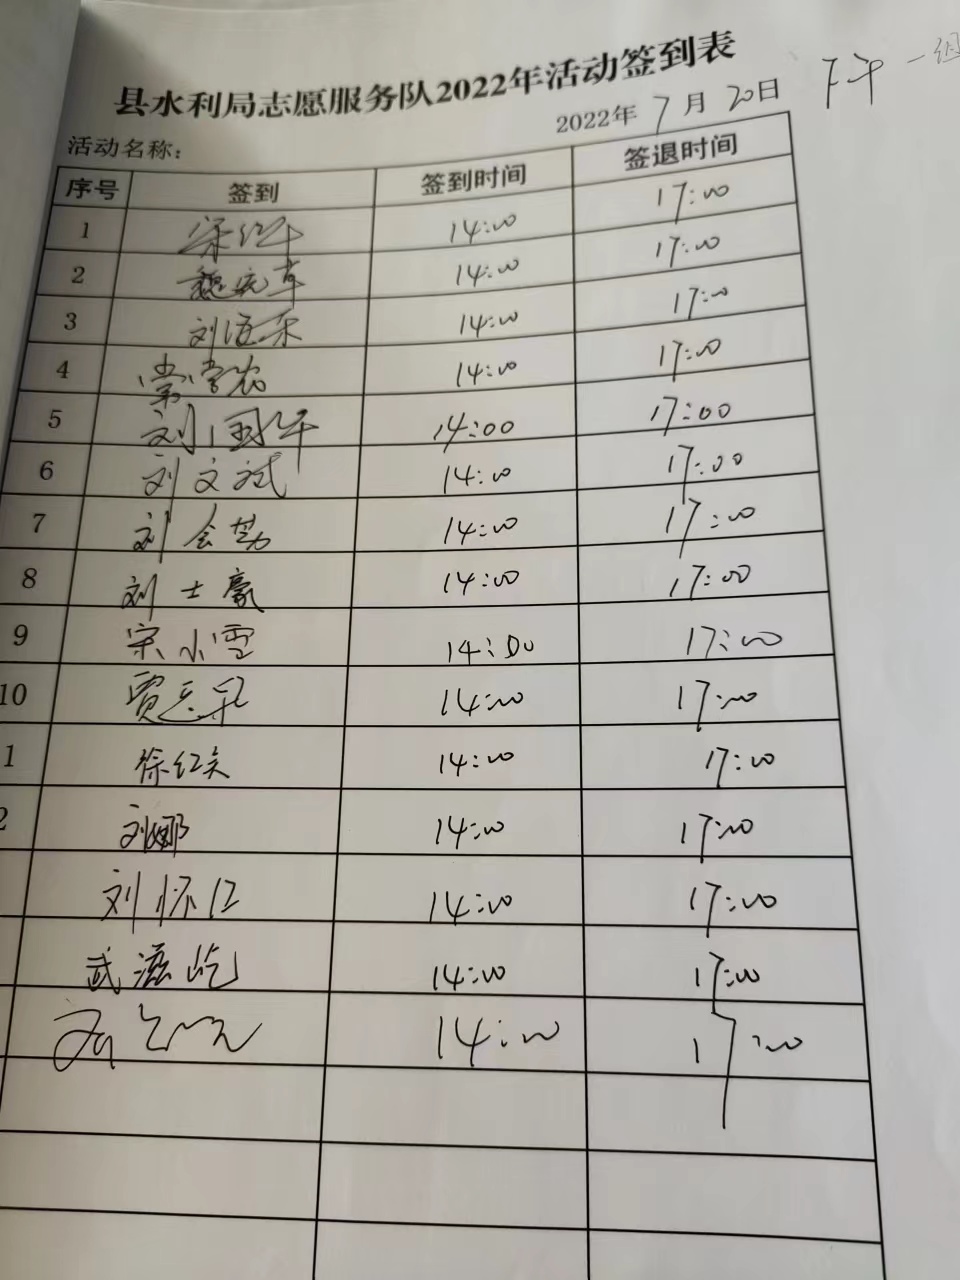 县水利局志愿服务队2022年活动签到表
2022年 7 月 20日 下午一组
活动名称：
序号 签到 签到时间 签退时间
1 14:00 17:00
2 14:00 17:00
3 刘海东 14:00 17:00
4 14:00 17:00
5 刘国华 14:00 17:00
6 刘文斌 14:00 17:00
7 刘会芬 14:00 17:00
8 刘士豪 14:00 17:00
9 宋小雪 14:00 17:00
10 14:00 17:00
1 徐红美 14:00 17:00
2 刘娜 14:00 17:00
刘怀仁 14:00 17:00
武滋屹 14:00 17:00
14:00 17:00